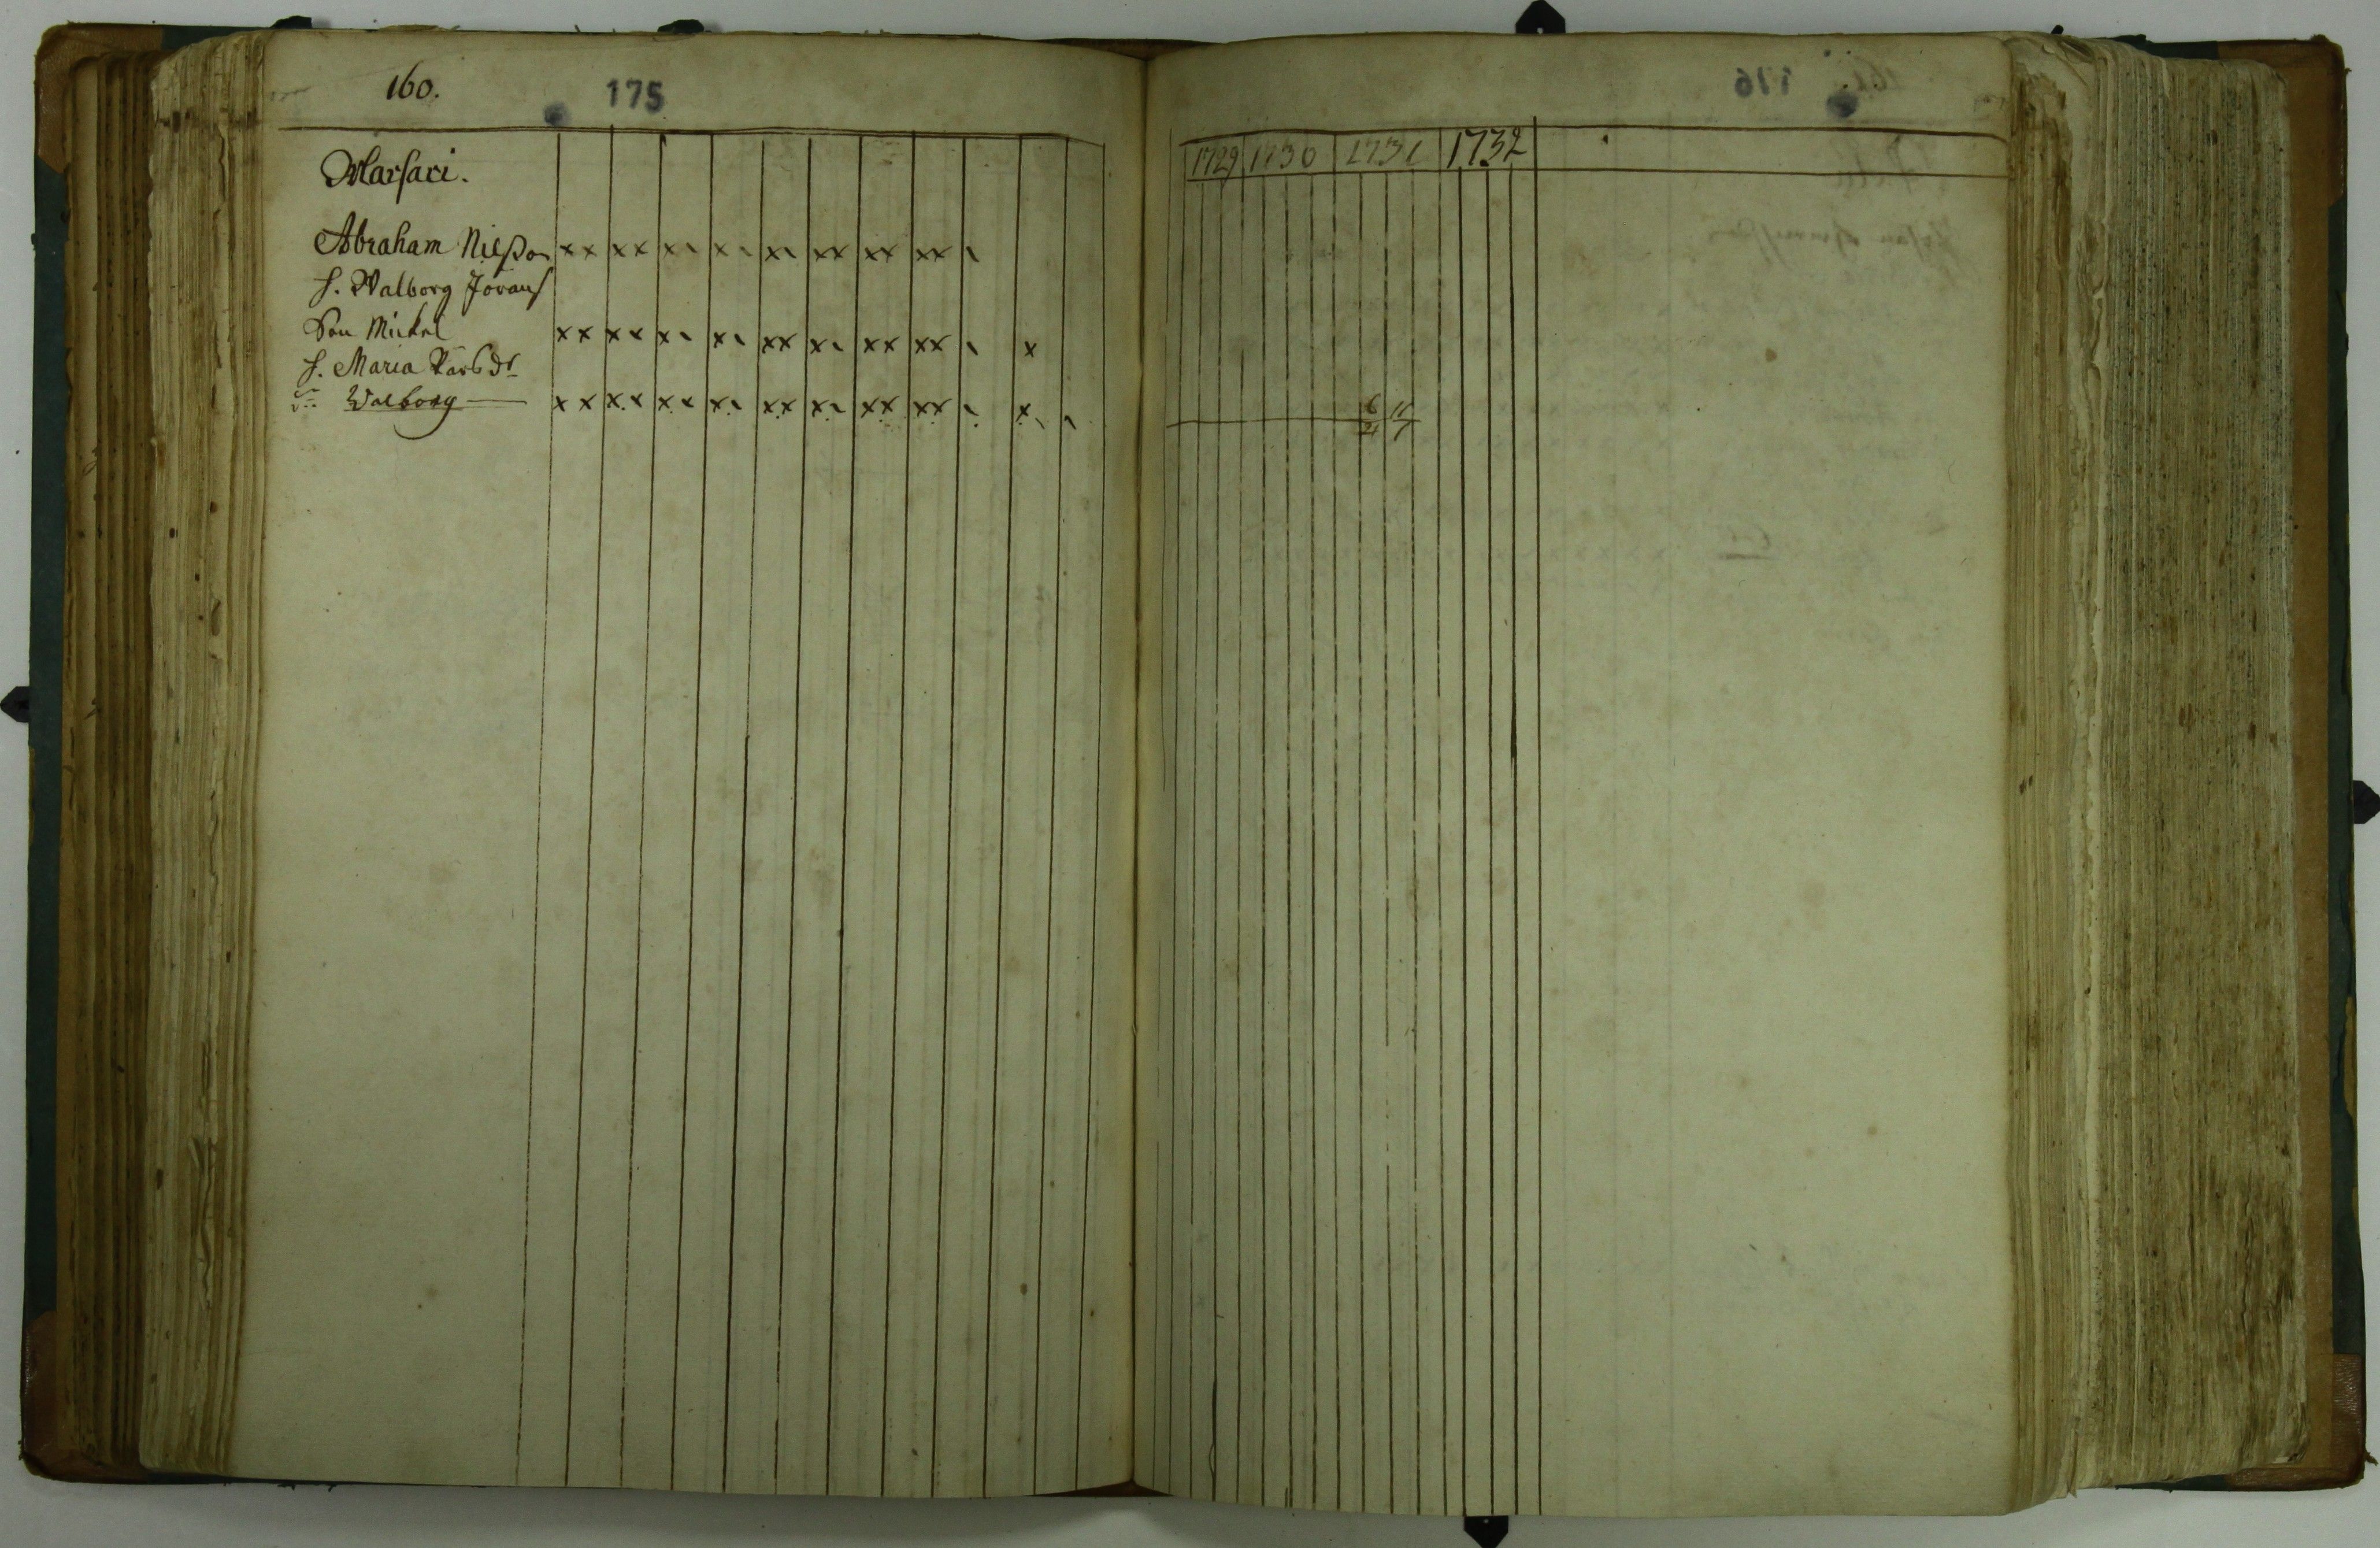 160.
175
Marsari.
Abraham Nilsson xx xx x\ x\ x\ xx xx xx \
h. Walborg Jörans
Son Mickel xx xx x\ x\ xx x\ xx xx \ x
h. Maria dr
Walborg xx xx xx x\ xx x\ xx xx \ x\ \
176
1729 1730 1731 1732
6 11
21 7